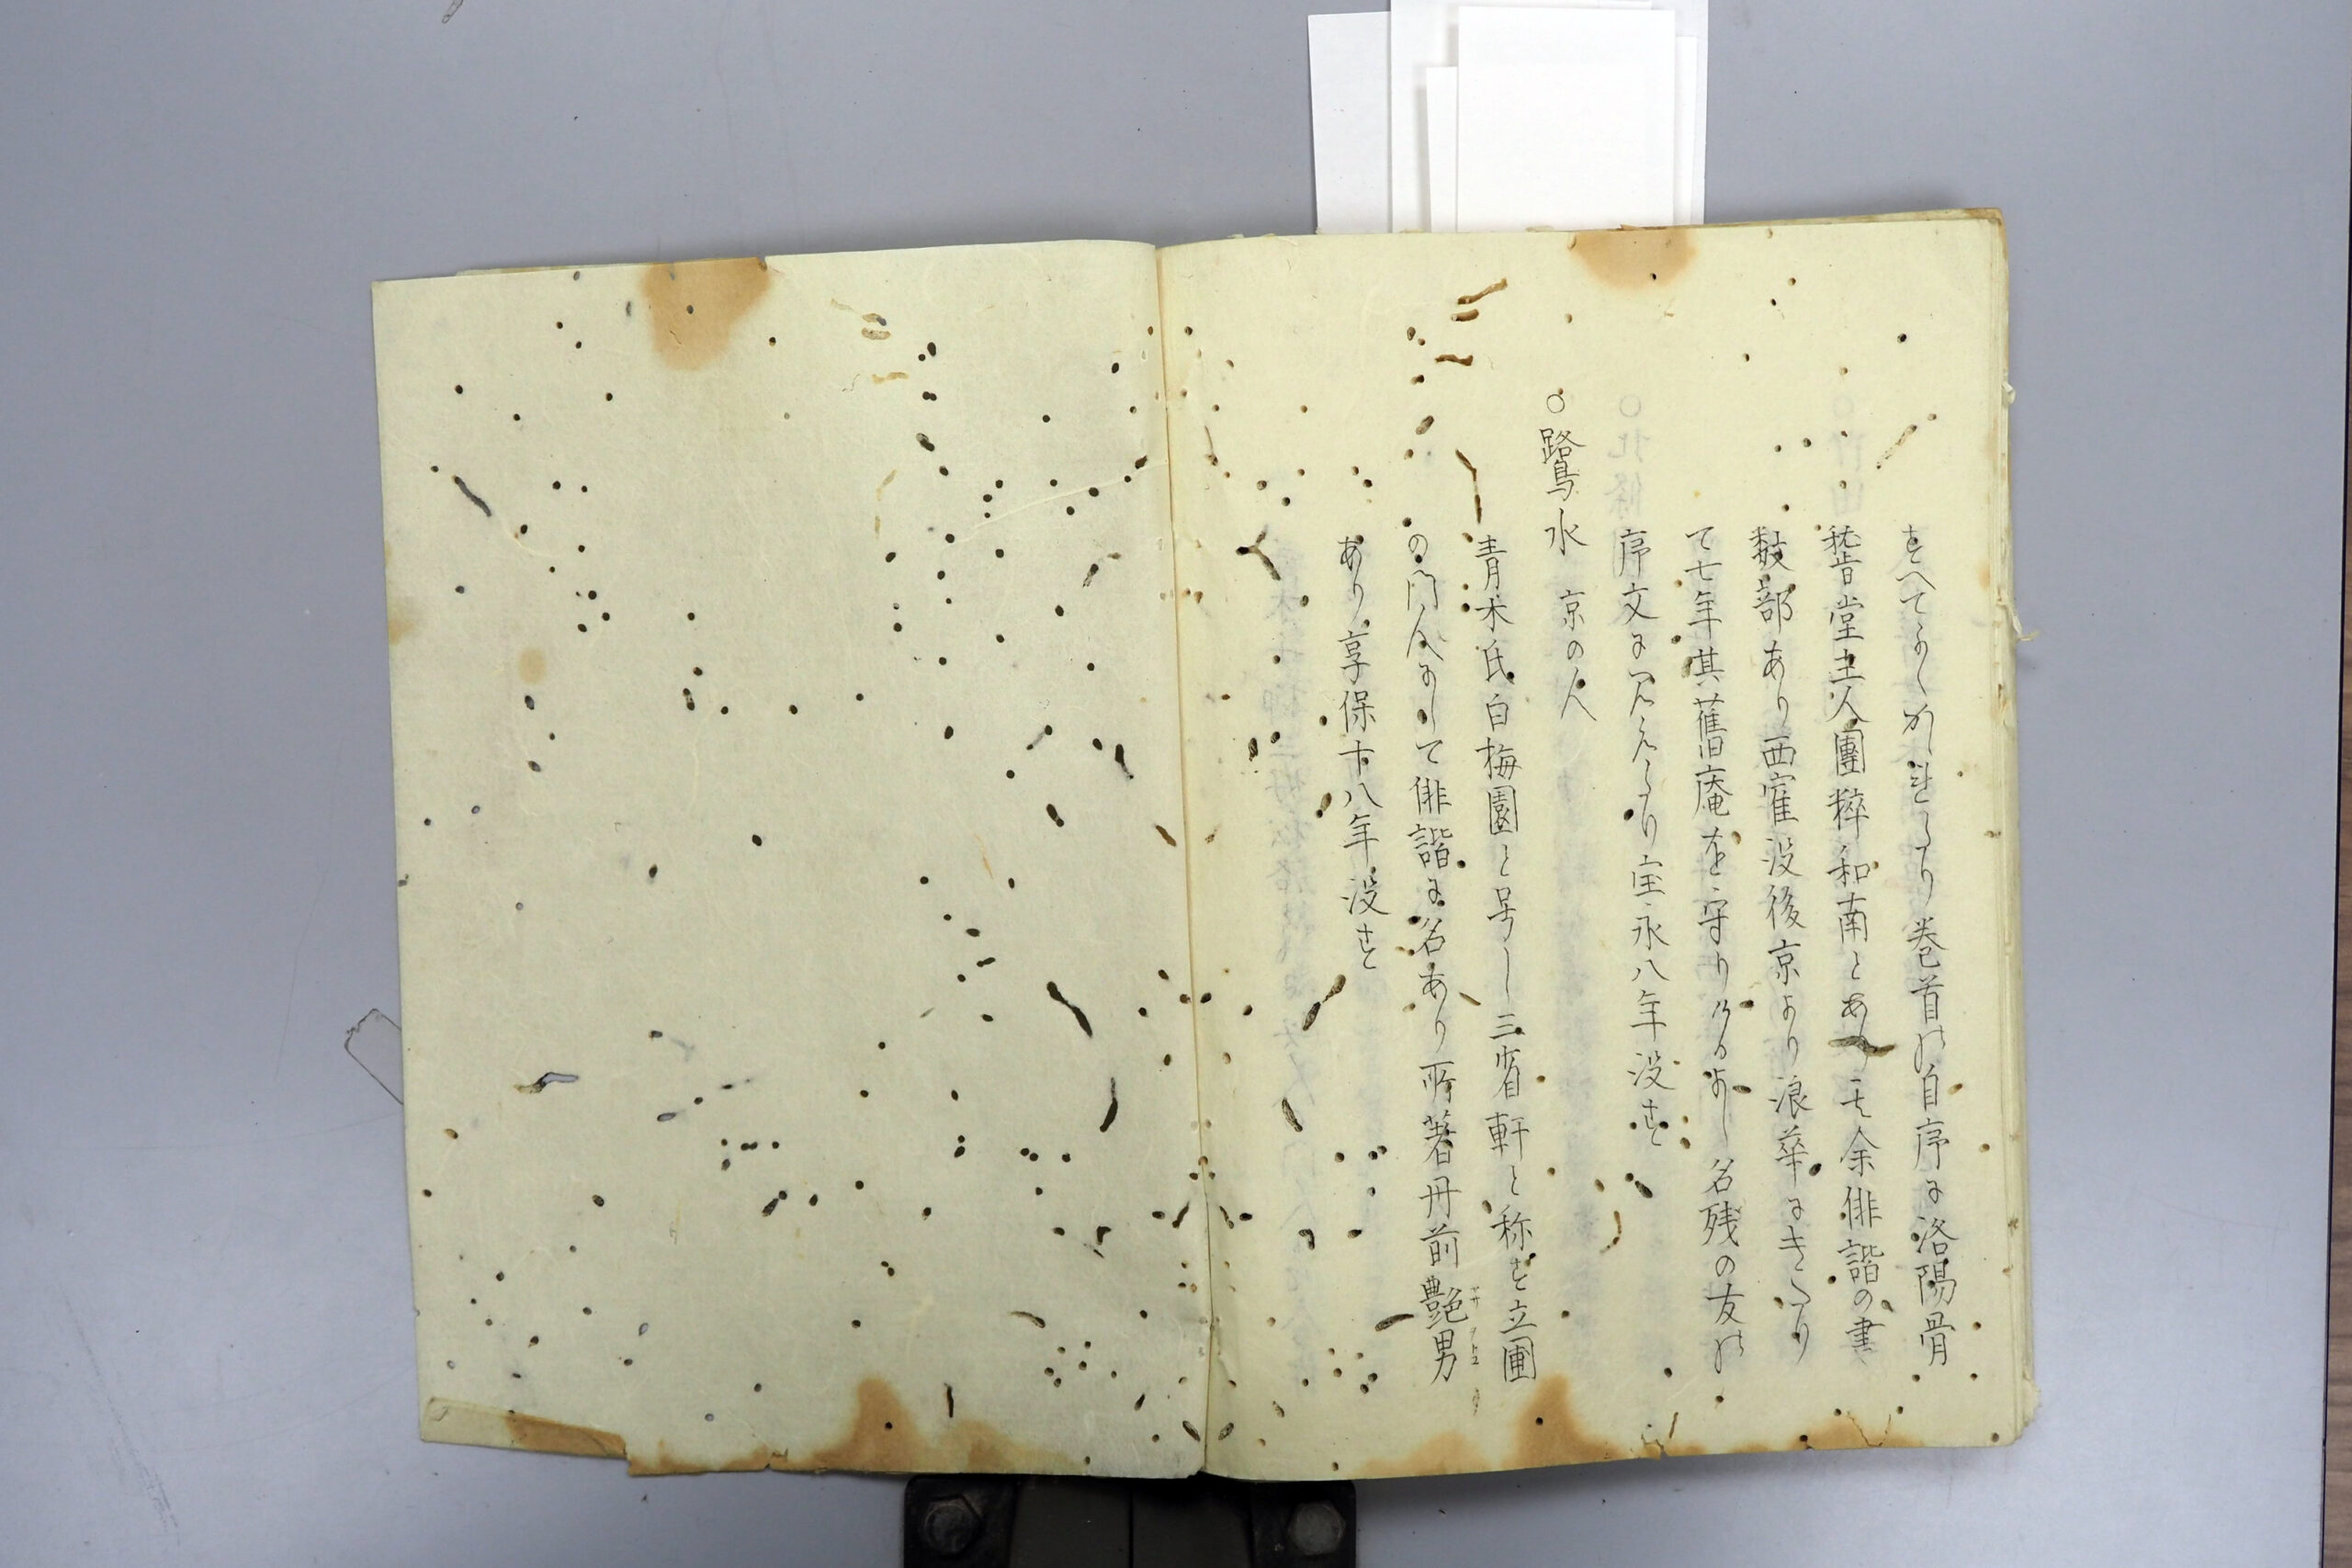 すへてよくかけたり巻首の自序に洛陽骨
嵆堂主人團粹和南とあり其余俳諧の書
数部あり西寉没後京より浪華にきたり
て七年其舊庵を守りけるよし名残の友の
序文に見えたり宝永八年没す
○鷺水　京の人
青木氏白梅園と号し三省軒と称す立圃
の門人にして俳諧に名あり所著丹前艶男
あり享保十八年没す